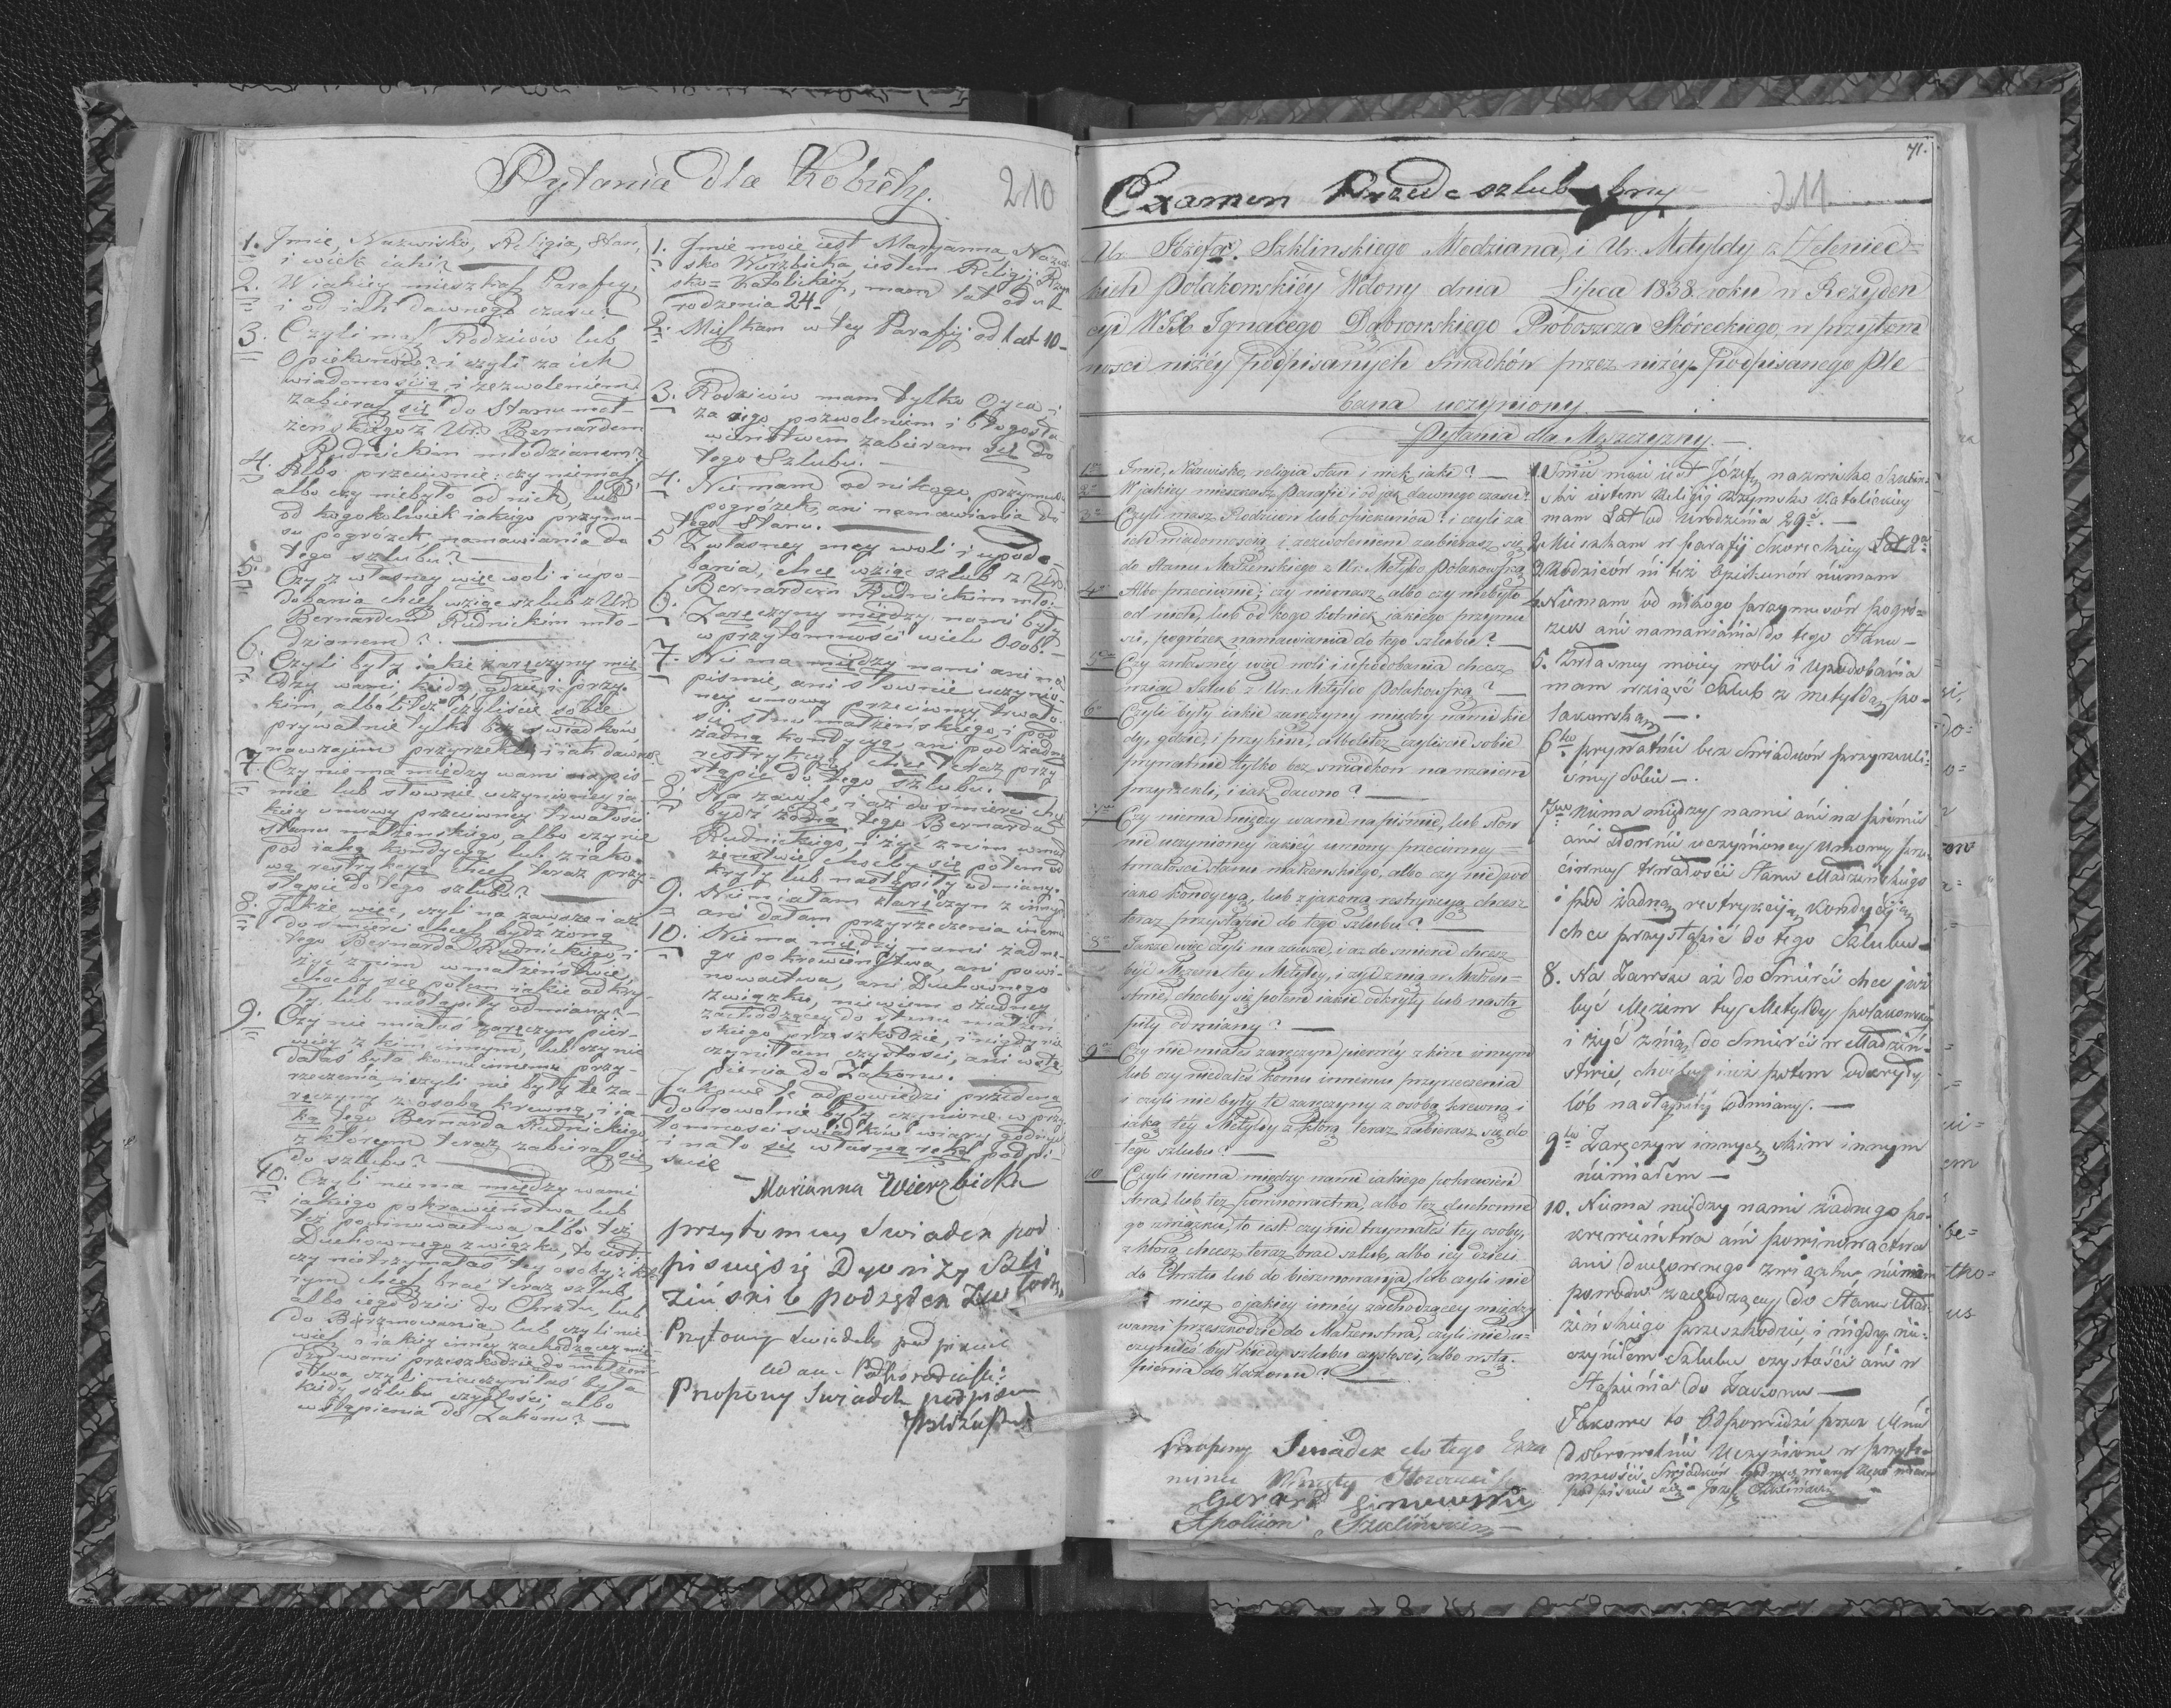 Pytania dla Kobiety.
210
1. Imie, Nazwisko, Religia, Stan,
i wiek iaki?
2. W iakiey mieszkasz Parafiy,
i od iak dawnego czasu?
3. Czyli masz Rodziców lub
Opiekunów? i czyli za ich
wiadomością i zezwoleniem
zabierasz się do Stanu mał-
żenskiego z Ur. Bernardem
Rudnickim młodzianem?
4. Albo przeciwnie: czy niemasz,
albo czy niebyło od nich, lub
od kogokolwiek iakiego przymu-
su pogróżek, namawiania do
tego szlubu?
5. Czy z własney więc woli i upo-
dobania chcesz wziąc szlub z Ur.
Bernardem Rudnickim mło-
dzianem?
6. Czyli były iakie zaręczyny mię-
dzy wami, kiedy, gdzie, i przy-
kim, albo też czyliście sobie
prywatnie tylko bez swiadków
nawzajem przyrzekli, i iak dawno?
7. Czy niema między wami na piś-
mie lub słownie uczynioney ia
kiey umowy przeciwney trwałości
stanu małżenskiego, albo czy nie
pod iaką kondycyą, lub z iako-
wą restrykcyą chcesz teraz przy-
stąpić do tego szlubu?
8. Także więc, czyli na zawsze i aż
do smierci chcesz bydz żoną
tego Bernarda Rudnickiego, i
żyć z nim w małżeństwie,
choćby się potem iakie odkry-
ły lub nastąpiły odmiany?
9. Czy nie miałaś zaręczyn pier-
wey z kim innym, lub czy nie
dałaś była komu innemu przy-
rzeczenia, i czyli nie były te za-
ręczyny z osobą krewną, i ia
ką tego Bernarda Rudnickiego,
z którem teraz zabierasz się
do szlubu?
10. Czyli niema między wami
iakiego pokrawieństwa lub
też powinowactwa, albo też
Duchownego związku, to iest:
czy nietrzymałaś tey osoby, z któ
rym chcesz brać teraz szlub,
albo iego dzieci do Chrztu, lub
do Bierzmowania, lub czyli nie-
wiesz o iakiey inney zachodzącey mię
dzy wami przeszkodzie do małżeń
stwa, czyli nieuczyniłaś była
kiedy szlubu czystości, albo
wstąpienia do Zakonu?
1. Imie moie iest Maryanna, Nazwi
sko Wierzbicka, iestem Religij Rzym
sko-Katolickiey, mam lat od u
rodzenia 24.
2. Mieszkam w tey Parafij od lat 10
3. Rodziców mam tylko Oyca i
za iego pozwoleniem i błogosła
wieństwem zabieram się do
tego Szlubu.
4. Niemam od nikogo przymusu
pogróżek, ani namawiania do
tego Stanu.
5. Z własney mey woli i upodo
bania, chcę wziąc szlub z Ur.
Bernardem Rudnickim mło:
6. Zaręczyny między nami były
w przytomności wiele Osob.
7. Nie ma między nami ani na
piśmie, ani słownie uczynio
ney umowy przeciwney trwało
ści stanu małżeńskiego, i pod
żadną kondycyą, ani pod żadną
restrykcyą, chcę teraz przy
stąpić do tego szlubu.
8. Na zawsze, i aż do śmierci chcę
bydz żoną tego Bernarda
Rudnickiego, i żyć z nim w mał
żeństwie choćby się potem od
kryły lub nastąpiły odmiany.
9. Niemiałam zaręczyn z innym
ani dałam przyrzeczenia innemu
10. Niema między nami żadne
go pokrewieństwa, ani powi-
nowactwa, ani Duchownego
związku, niewiem o żadney
zachodzącey do stanu małżeń
skiego przeszkodzie, i nigdy nie
czyniłam czystości, ani wstą
pienia do Zakonu.
Jakowe te odpowiedzi przezemnę
dobrowolnie były czynione w przy
tomności swiadków wiary godnych
i na to się własną ręką podpi-
suię
Marianna Wierzbicka
przytomny Swiadek pod
pisuię się Dyonizy
Przytomy Swiadek podpisuie
Przytomy Swiadek podpisu
71.
211
Examen Przed-szlubny
Ur. Józefa Szklinskiego Młodziana, i Ur. Metyldy z Zeleniec-
kich Polakowskiéy Wdowy dnia Lipca 1838 roku w Rezyden
cyi WJX Ignacego Dąbrowskiego Proboszcza Skóreckiego, w przytom
nosci niżéy podpisanych Swiadków przez niżéy podpisanego Ple
bana uczyniony.
Pytania dla Męszczyzny.
1o Imie, Nazwisko, religia stan i wiek iaki?
2o W jakiéy mieszkasz Parafii i od jak dawnego czasu?
3o Czyli masz Rodziców lub opiekunów? i czyli za
ich wiadomością i zezwoleniem zabierasz się
do Stanu Małżenskiego z Ur. Metyldą Polakowską
4o Albo przeciwnie, czy niemasz albo czy niebyło
od nich, lub od kogo kolwiek jakiego przymu
su, pogrózek namawiania do tego szlubu?
5o Czy z własnéy więc woli i upodobania chcesz
wziąć Szlub z Ur. Metyldą Polakowską?
6o Czyli były iakie zaręczyny między wami kie
dy, gdzie, i przy kim, albo też czyliscie sobie
prywatnie tylko bez swiadków nawzaiem
przyrzekli, i iak dawno?
7o Czy niema między wami na piśmie, lub słow
nie uczynioney iakiéy umowy przeciwney
trwałosci stanu małżenskiego, albo czy nie pod
jaką kondycyą, lub z jakową restrykcyą chcesz
teraz przystąpić do tego szlubu?
8o Także więc czyli na zawsze i aż do smierci chcesz
być Mężem tey Metyldy, i żyć z nią w Małżen-
stwie, choćby się potem iakie odkryły lub nastą
piły odmiany?
9o Czy nie miałeś zaręczyn pierwéy z kim innym
lub czy niedałeś komu innemu przyrzeczenia
i czyli nie były te zaręczyny z osobą krewną i
iaką téy Metyldy z którą teraz zabierasz się do
tego szlubu?
10 Czyli niema między wami iakiego pokrewień
stwa, lub też powinowactwa, albo też duchowne
go związku, to iest: czy nie trzymałeś téy osoby,
z którą chcesz teraz brać szlub, albo iey dzieci
do Chrztu lub do bierzmowania, lub czyli nie
wiesz o jakiey innéy zachodzącey między
wami przeszkodzie do Małżenstwa, czyli nieu-
czyniłeś był kiedy szlubu czystosci, albo wstą-
pienia do Zakonu?
Proszony Swiadek do tego Exa
minu
Gerard
Apolinary
1. Imie moie iest Józef, nazwisko Szklin-
ski iestem Religij Rzymsko Katolickiey
mam Lat od Urodzenia 29.
2. Mieszkam w Parafij Skoreckiey Lat 2
3. Rodziców ni też Opiekunów niemam
4. Niemam od nikogo przymusów pogró-
żek ani namawiania do tego Stanu
5. Z własney moiey woli i Upodobania
mam wziąść Szlub z Metyldą Po-
lakowską.
6to prywatnie bez Swiadków przyrzekli-
śmy Sobie.
7mo Niema między nami ani na piśmie
ani słownie uczynioney Umowy prze-
ciwney trwałości Stanu Małżeńskiego
i pod żadną restrykcyją, kondycyją
chcę przystąpić do tego Szlubu
8. Na Zawsze aż do Smierci chcę już
być Mężem tey Metyldy Polakowskiey
i żyć z nią do Smierci w Małżeń-
stwie, choćby się też potem odkryły
lób nastąpiły Odmiany.
9to Zaręczyn innych z kim innym
niemiałem
10. Niema między nami żadnego po-
krewieństwa ani powinowactwa
ani duchownego związku niemam
powodu zachodzącey do Stanu Mał-
żeńskiego przeszkodzie, i nigdy nie-
czyniłem Szlubu czystości ani w
stąpienia do Zakonu
Takowe to Odpowiedzi przez Mnie
dobrowolnie Uczynione w przyto-
mności Swiadków
podpisuie się Józef Szkliński